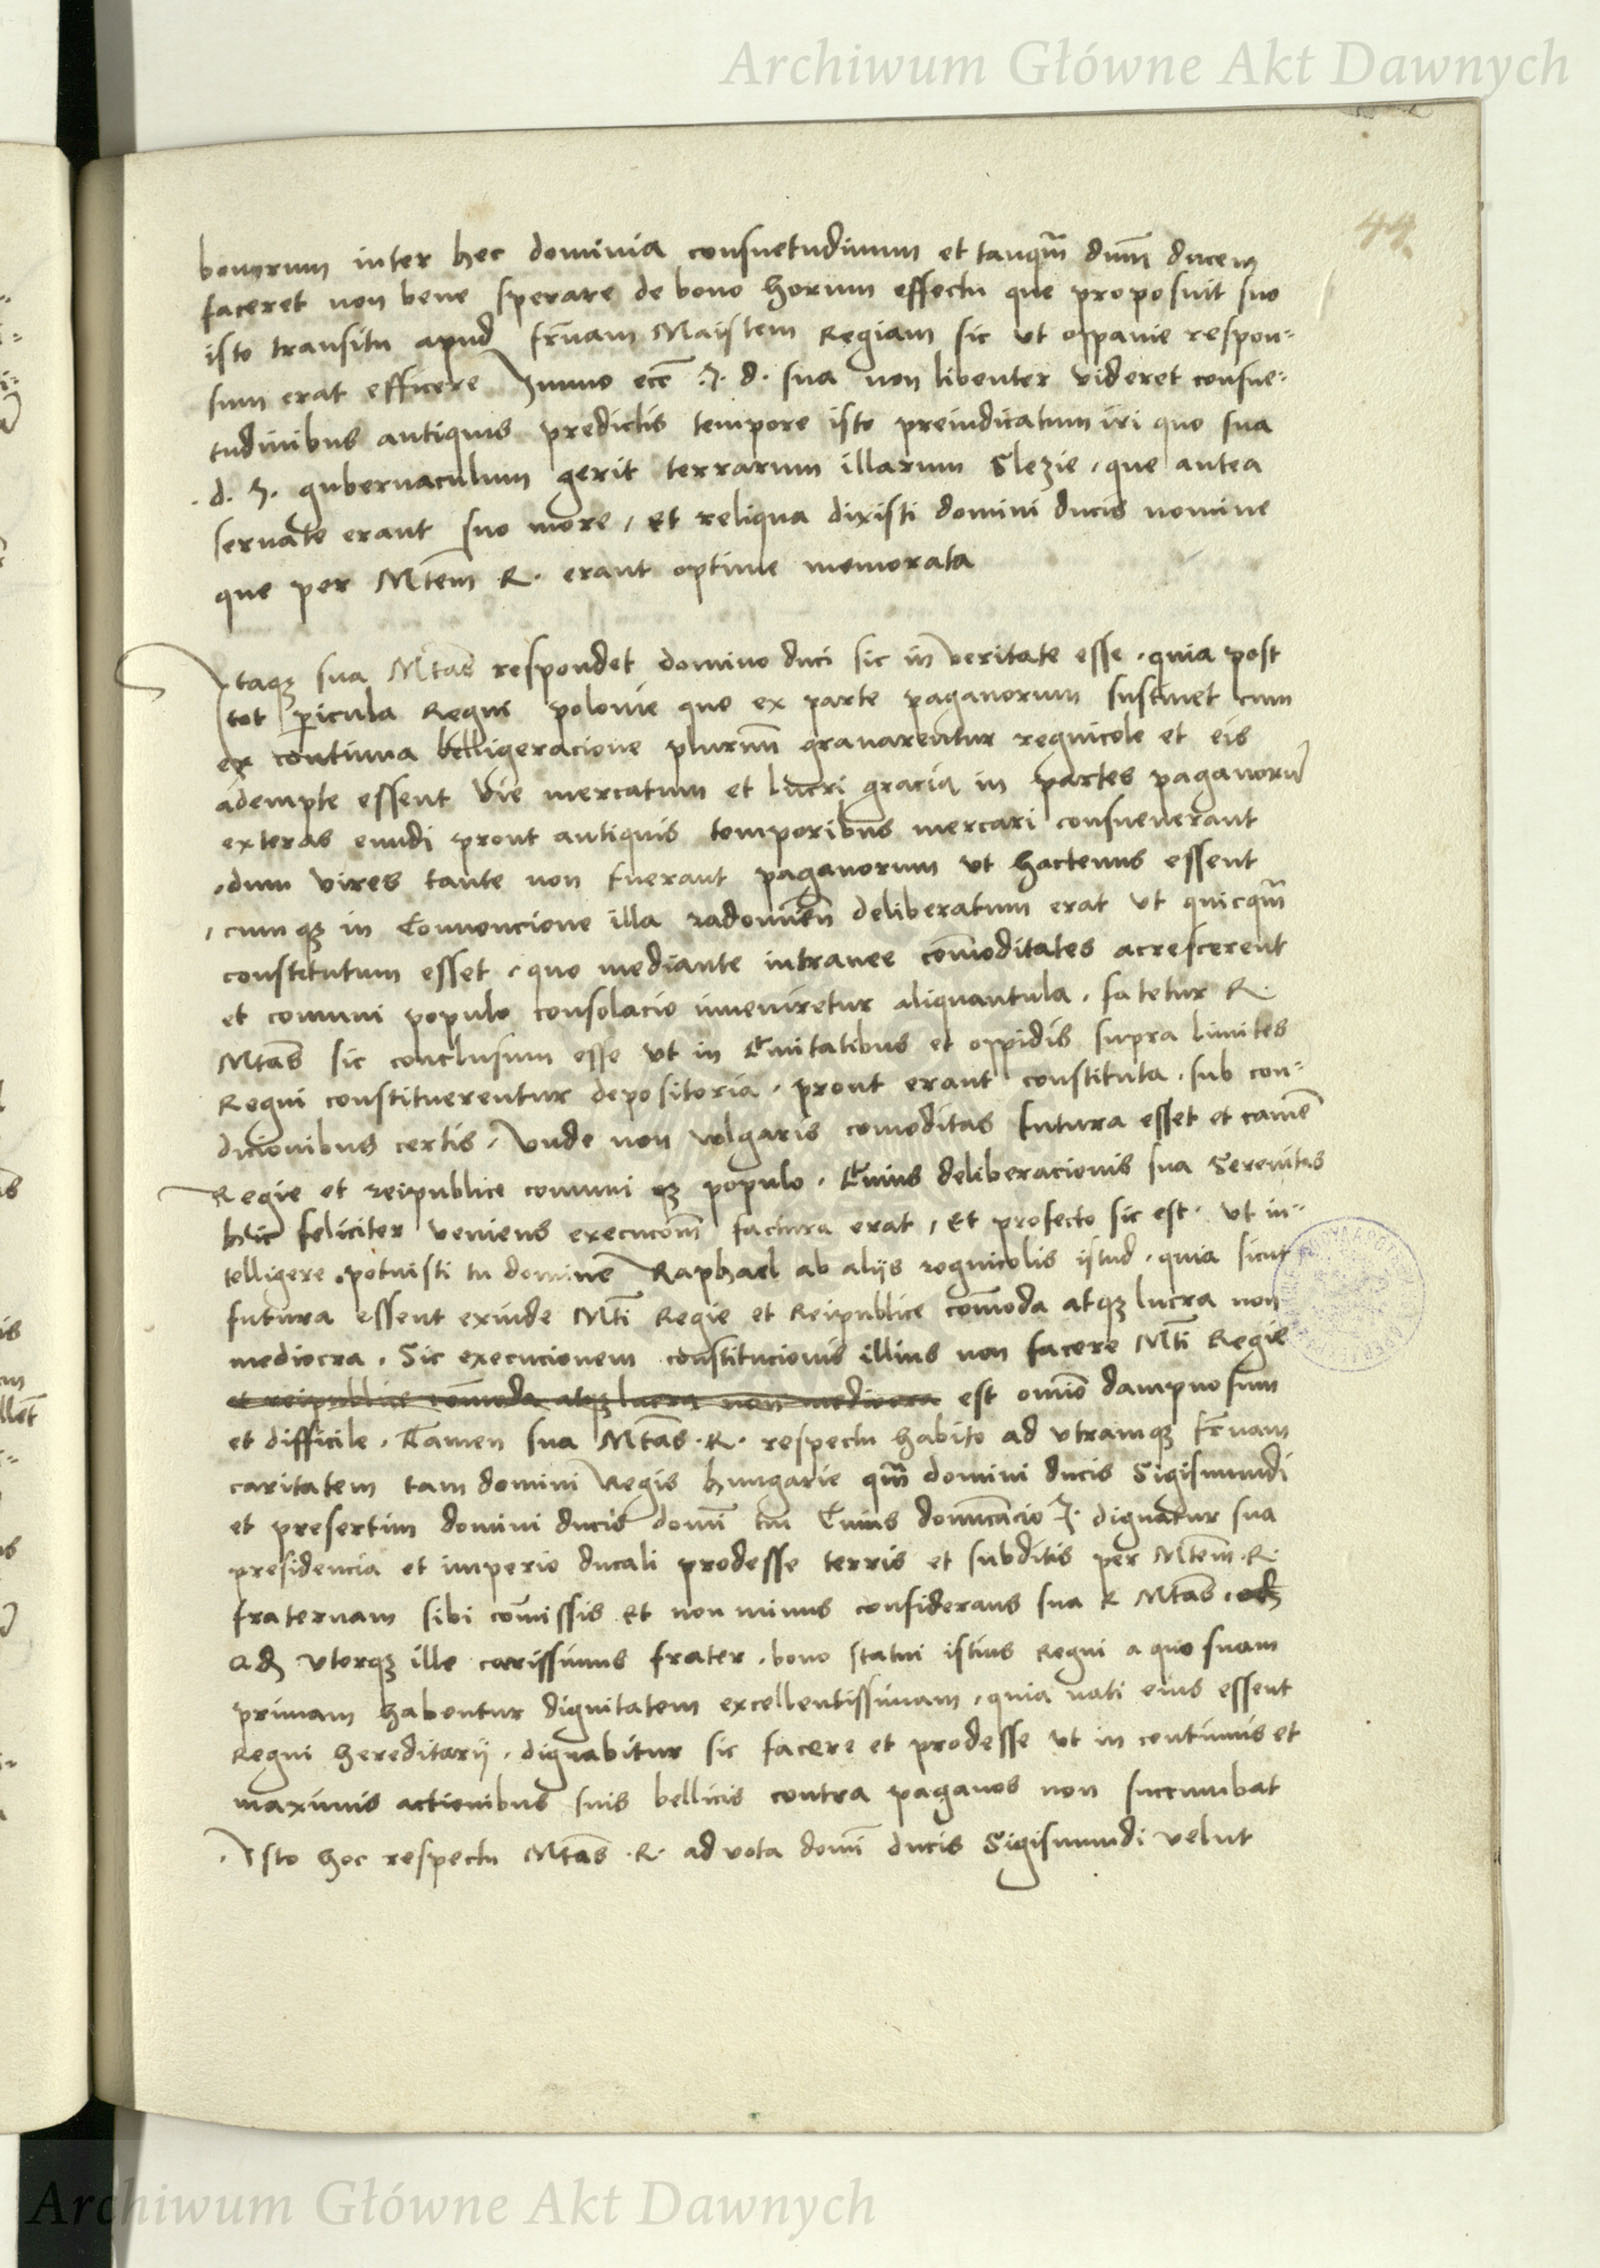 Archiwum Główne Akt Dawnych
44
bonorum inter hec dominia consuetudinum et tanqm̄ dnm̄ ducem
faceret non bene sperare de bono horum effectu que proposuit suo
isto transitu apud fr̄nam Maistem Regiam sic ut oppanie respon-
sum erat efficere Immo ecc̄ .I. d. sua non libenter videret consue-
tudinibus antiquis predictis tempore isto preiudicatum iri quo sua
d. I. gubernaculum gerit terrarum illarum Slezie, que antea
seruate erant suo more, et reliqua dixisti domini ducis nomine
que per Mtēm R. erant optime memorata
Itaqz sua Mtās respondet domino duci sic in veritate esse. quia post
tot pericula Regni polonie que ex parte paganorum sustinet cum
ex continua belligeracione plurimū grauarentur regnicole et eis
adempte essent vie mercatum et lucri gracia in partes paganorū
exteras eundi prout antiquis temporibus mercari consueuerant
.dum vires tante non fuerant paganorum ut hactenus essent
, cumqz in Conuencione illa radomieñ deliberatum erat ut quicqm̄
constitutum esset, quo mediante intranee com̄oditates acrescerent
et comuni populo consolacio inueniretur aliquantula. fatetur R.
Mtās sic conclusum esse ut in Ciuitatibus et oppidis supra limites
Regni constituerentur depositoria. prout erant constituta. sub con-
dicionibus certis, vnde non volgaris comoditas futura esset et camē
Regie et reipublice comuni qz populo. Cuius deliberacionis sua Serenitas
huc feliciter veniens execucom̄ factura erat, Et profecto sic est. ut in-
telligere potuisti tu domine Raphael ab alijs regnicolis istud. quia sicut
futura essent exinde Mtī Regie et Reipublice com̄oda atqz lucra non
mediocra. Sic execucionem constitucionis illius non facere Mtī Regie
et reipublice com̄oda atqz lucra non mediocra est omīo dampnosum
et difficile. Tamen sua Mtās .R. respectu habito ad utramqz fr̄nam
caritatem tam domini Regis hungarie qm̄ domini ducis Sigismundi
et presertim domini ducis domī tui Cuius I. dignatur sua
presidencia et imperio ducali prodesse terris et subditis per Mtēm .R.
fraternam sibi com̄issis. Et non minus considerans sua R Mtās.
utorqz ille carissimus frater. bono statui istius Regni a quo suam
primam habentur dignitatem excellentissimam, quia nati eius essent
Regni hereditarij. dignabitur sic facere et prodesse ut in continuis et
maximis actionibus suis bellicis contra paganos non succumbat
. Isto hoc respectu Mtās .R. ad vota domī ducis Sigismundi velut
Archiwum Główne Akt Dawnych